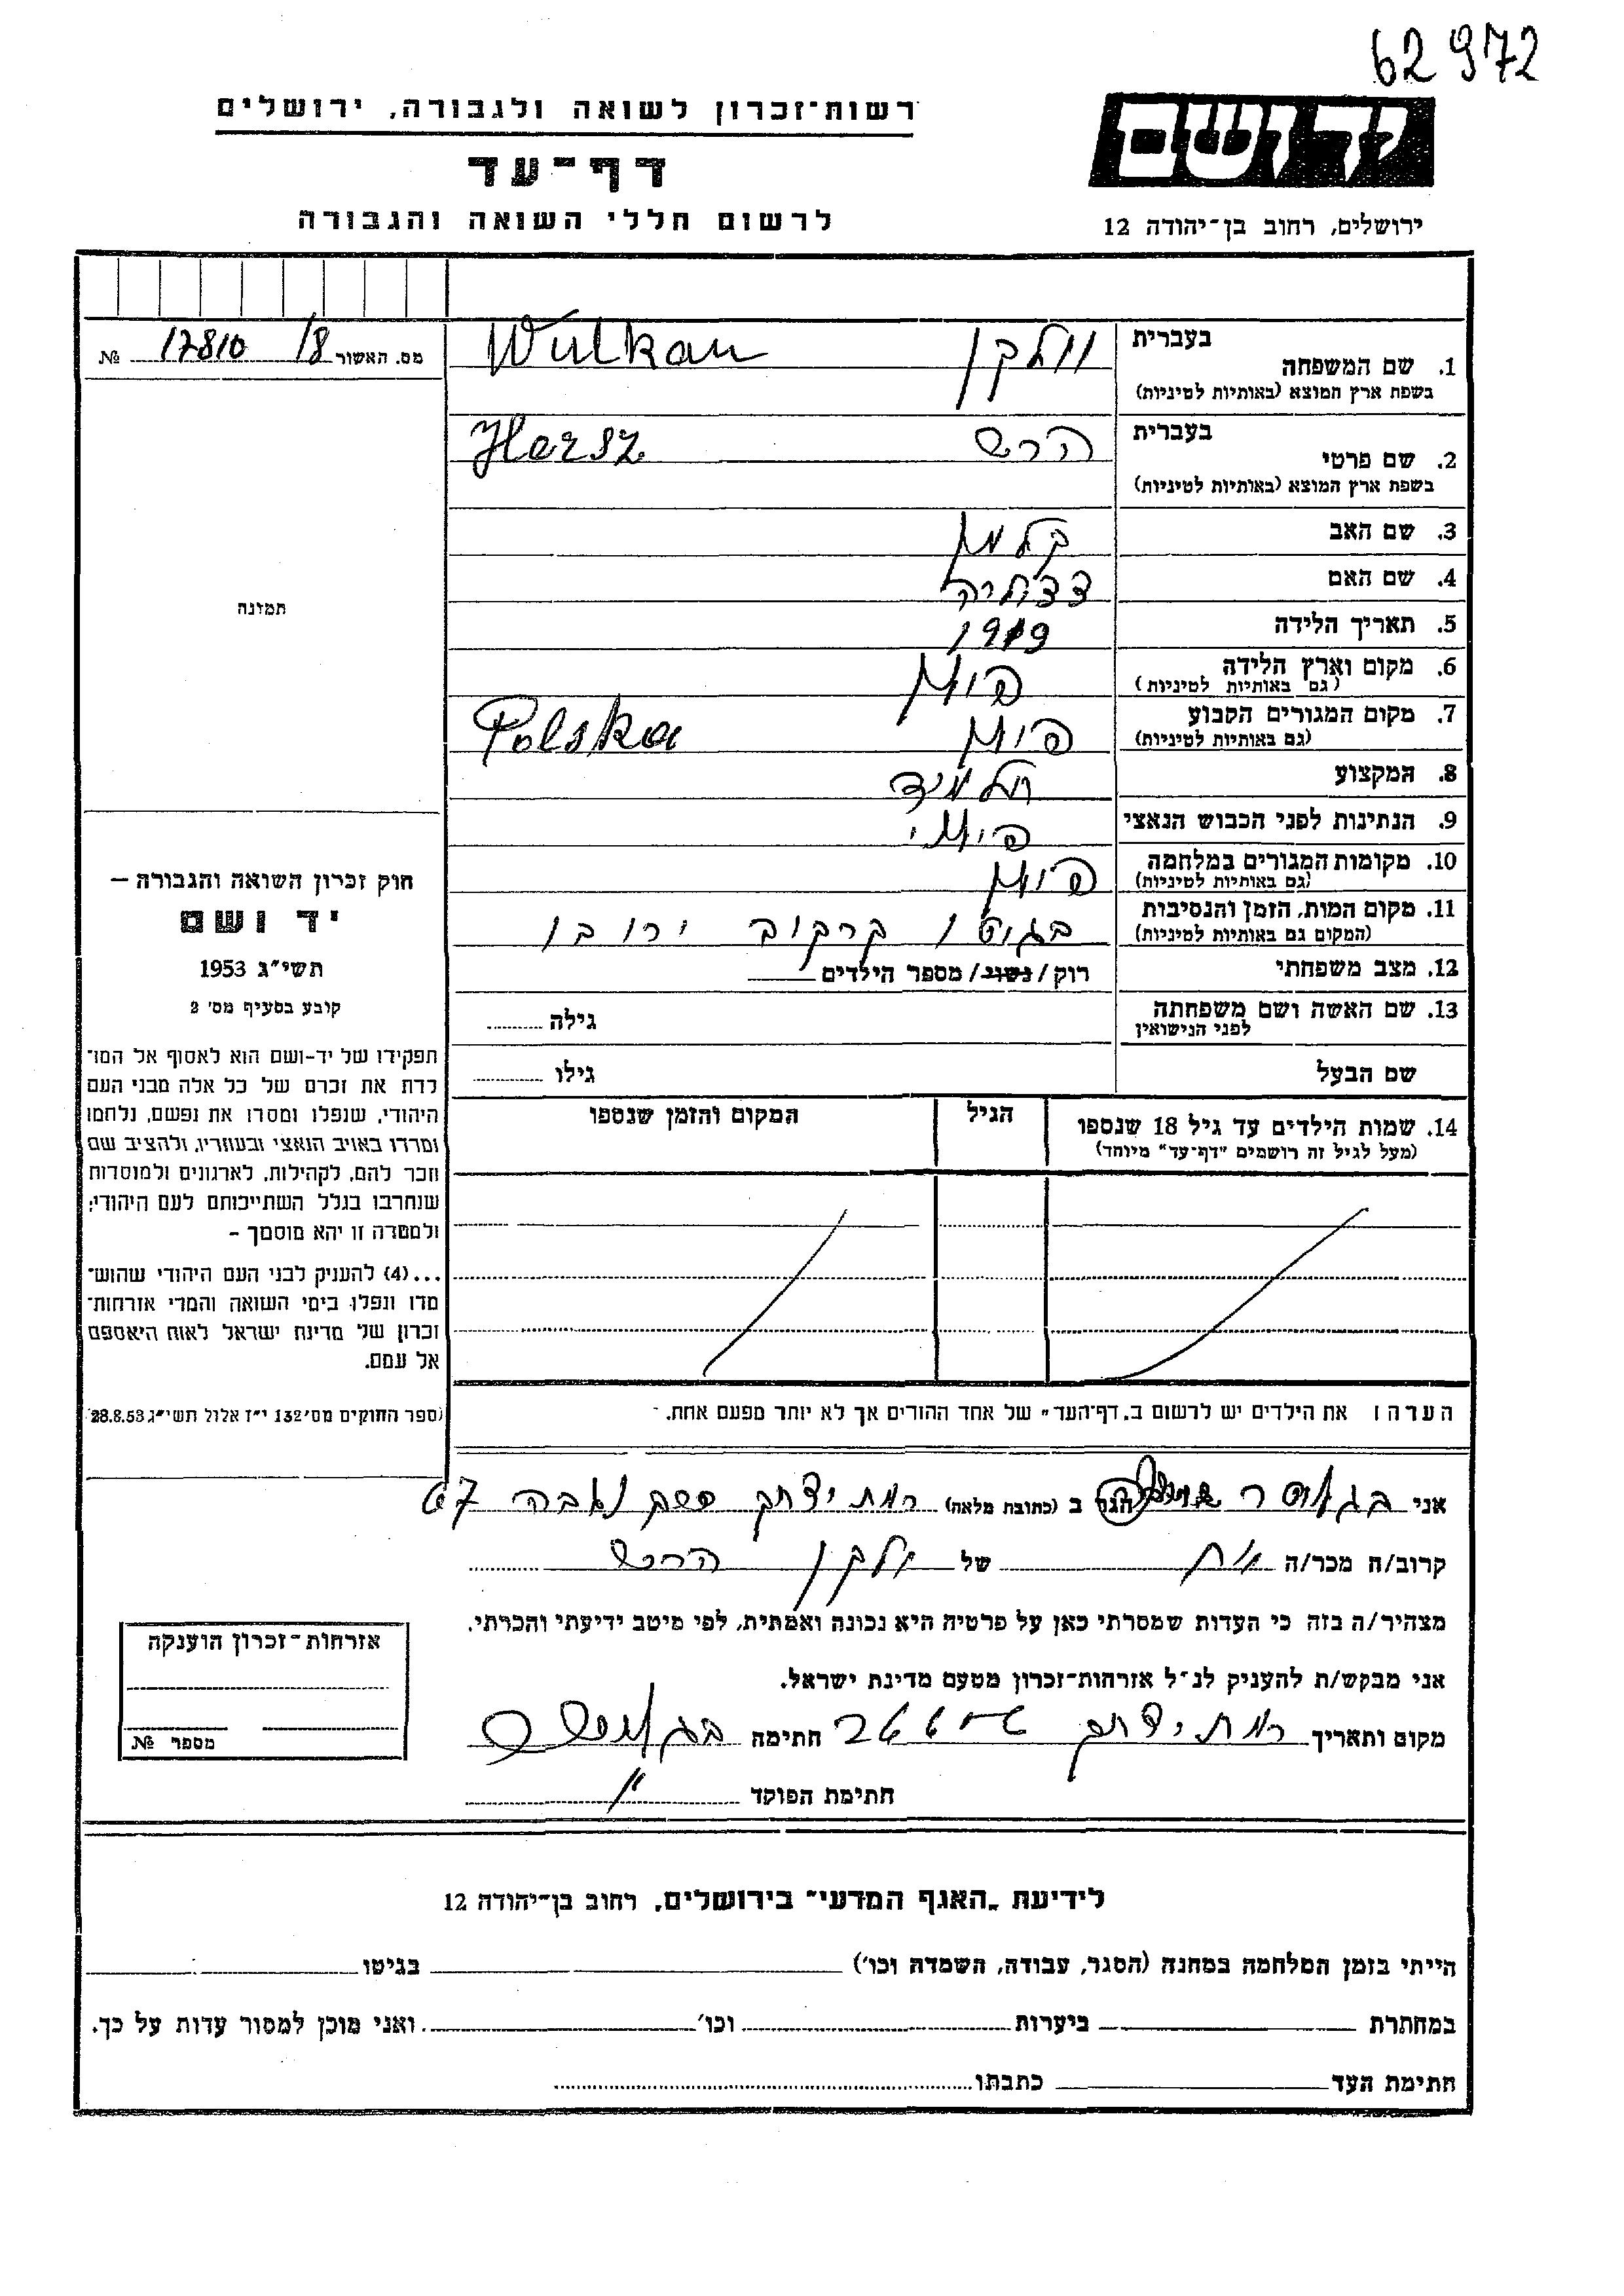 62972
רשות־זכרון לשואה ולגבורה, ירושלים
ידושם
דף־עד
לרשום חללי השואה והגבורה
ירושלים, רחוב בן־יהודה 12
מס. האשור 18/ 17810 №
בעברית
1. שם המשפחה וולקן Wulkan
בשפת ארץ המוצא (באותיות לטיניות)
בעברית
2. שם פרטי הרש Hersz
בשפת ארץ המוצא (באותיות לטיניות)
3. שם האב קלמן
4. שם האם
5. תאריך הלידה 1919
6. מקום וארץ הלידה
(גם באותיות לטיניות)
7. מקום המגורים הקבוע Polska
(גם באותיות לטיניות)
8. המקצוע תלמיד
9. הנתינות לפני הכבוש הנאצי
10. מקומות המגורים במלחמה
(גם באותיות לטיניות)
11. מקום המות, הזמן והנסיבות בגיטו קרקוב
(המקום גם באותיות לטיניות)
12. מצב משפחתי רוק/נשוי/מספר הילדים
13. שם האשה ושם משפחתה גילה
לפני הנישואין
שם הבעל גילו
14. שמות הילדים עד גיל 18 שנספו הגיל המקום והזמן שנספו
(מעל לגיל זה רושמים "דף־עד" מיוחד)
תמונה
חוק זכרון השואה והגבורה —
יד ושם
תשי״ג 1953
קובע בסעיף מס' 2
תפקידו של יד-ושם הוא לאסוף אל המו־
לדת את זכרם של כל אלה מבני העם
היהודי, שנפלו ומסרו את נפשם, נלחמו
ומרדו באויב הנאצי ובעוזריו, ולהציב שם
וזכר להם, לקהילות, לארגונים ולמוסדות
שנחרבו בגלל השתייכותם לעם היהודי;
ולמטרה זו יהא מוסמך –
...(4) להעניק לבני העם היהודי שהוש־
מדו ונפלו בימי השואה והמרי אזרחות־
זכרון של מדינת ישראל לאות היאספם
אל עמם.
(ספר החוקים מס' 132 י״ז אלול תשי״ג 28.8.53)
הערה: את הילדים יש לרשום ב„דף־העד" של אחד ההורים אך לא יותר מפעם אחת.
אני הגר ב (כתובת מלאה) רמת יצחק 67
קרוב/ה מכר/ה של וולקן הרש
מצהיר/ה בזה כי העדות שמסרתי כאן על פרטיה היא נכונה ואמתית, לפי מיטב ידיעתי והכרתי.
אני מבקש/ת להעניק לנ״ל אזרחות־זכרון מטעם מדינת ישראל.
מקום ותאריך רמת יצחק חתימה
חתימת הפוקד
אזרחות־זכרון הוענקה
מספר №
לידיעת „האגף המדעי" בירושלים, רחוב בן־יהודה 12
הייתי בזמן המלחמה במחנה (הסגר, עבודה, השמדה וכו') בגיטו
במחתרת ביערות וכו' ואני מוכן למסור עדות על כך.
חתימת העד כתבתו